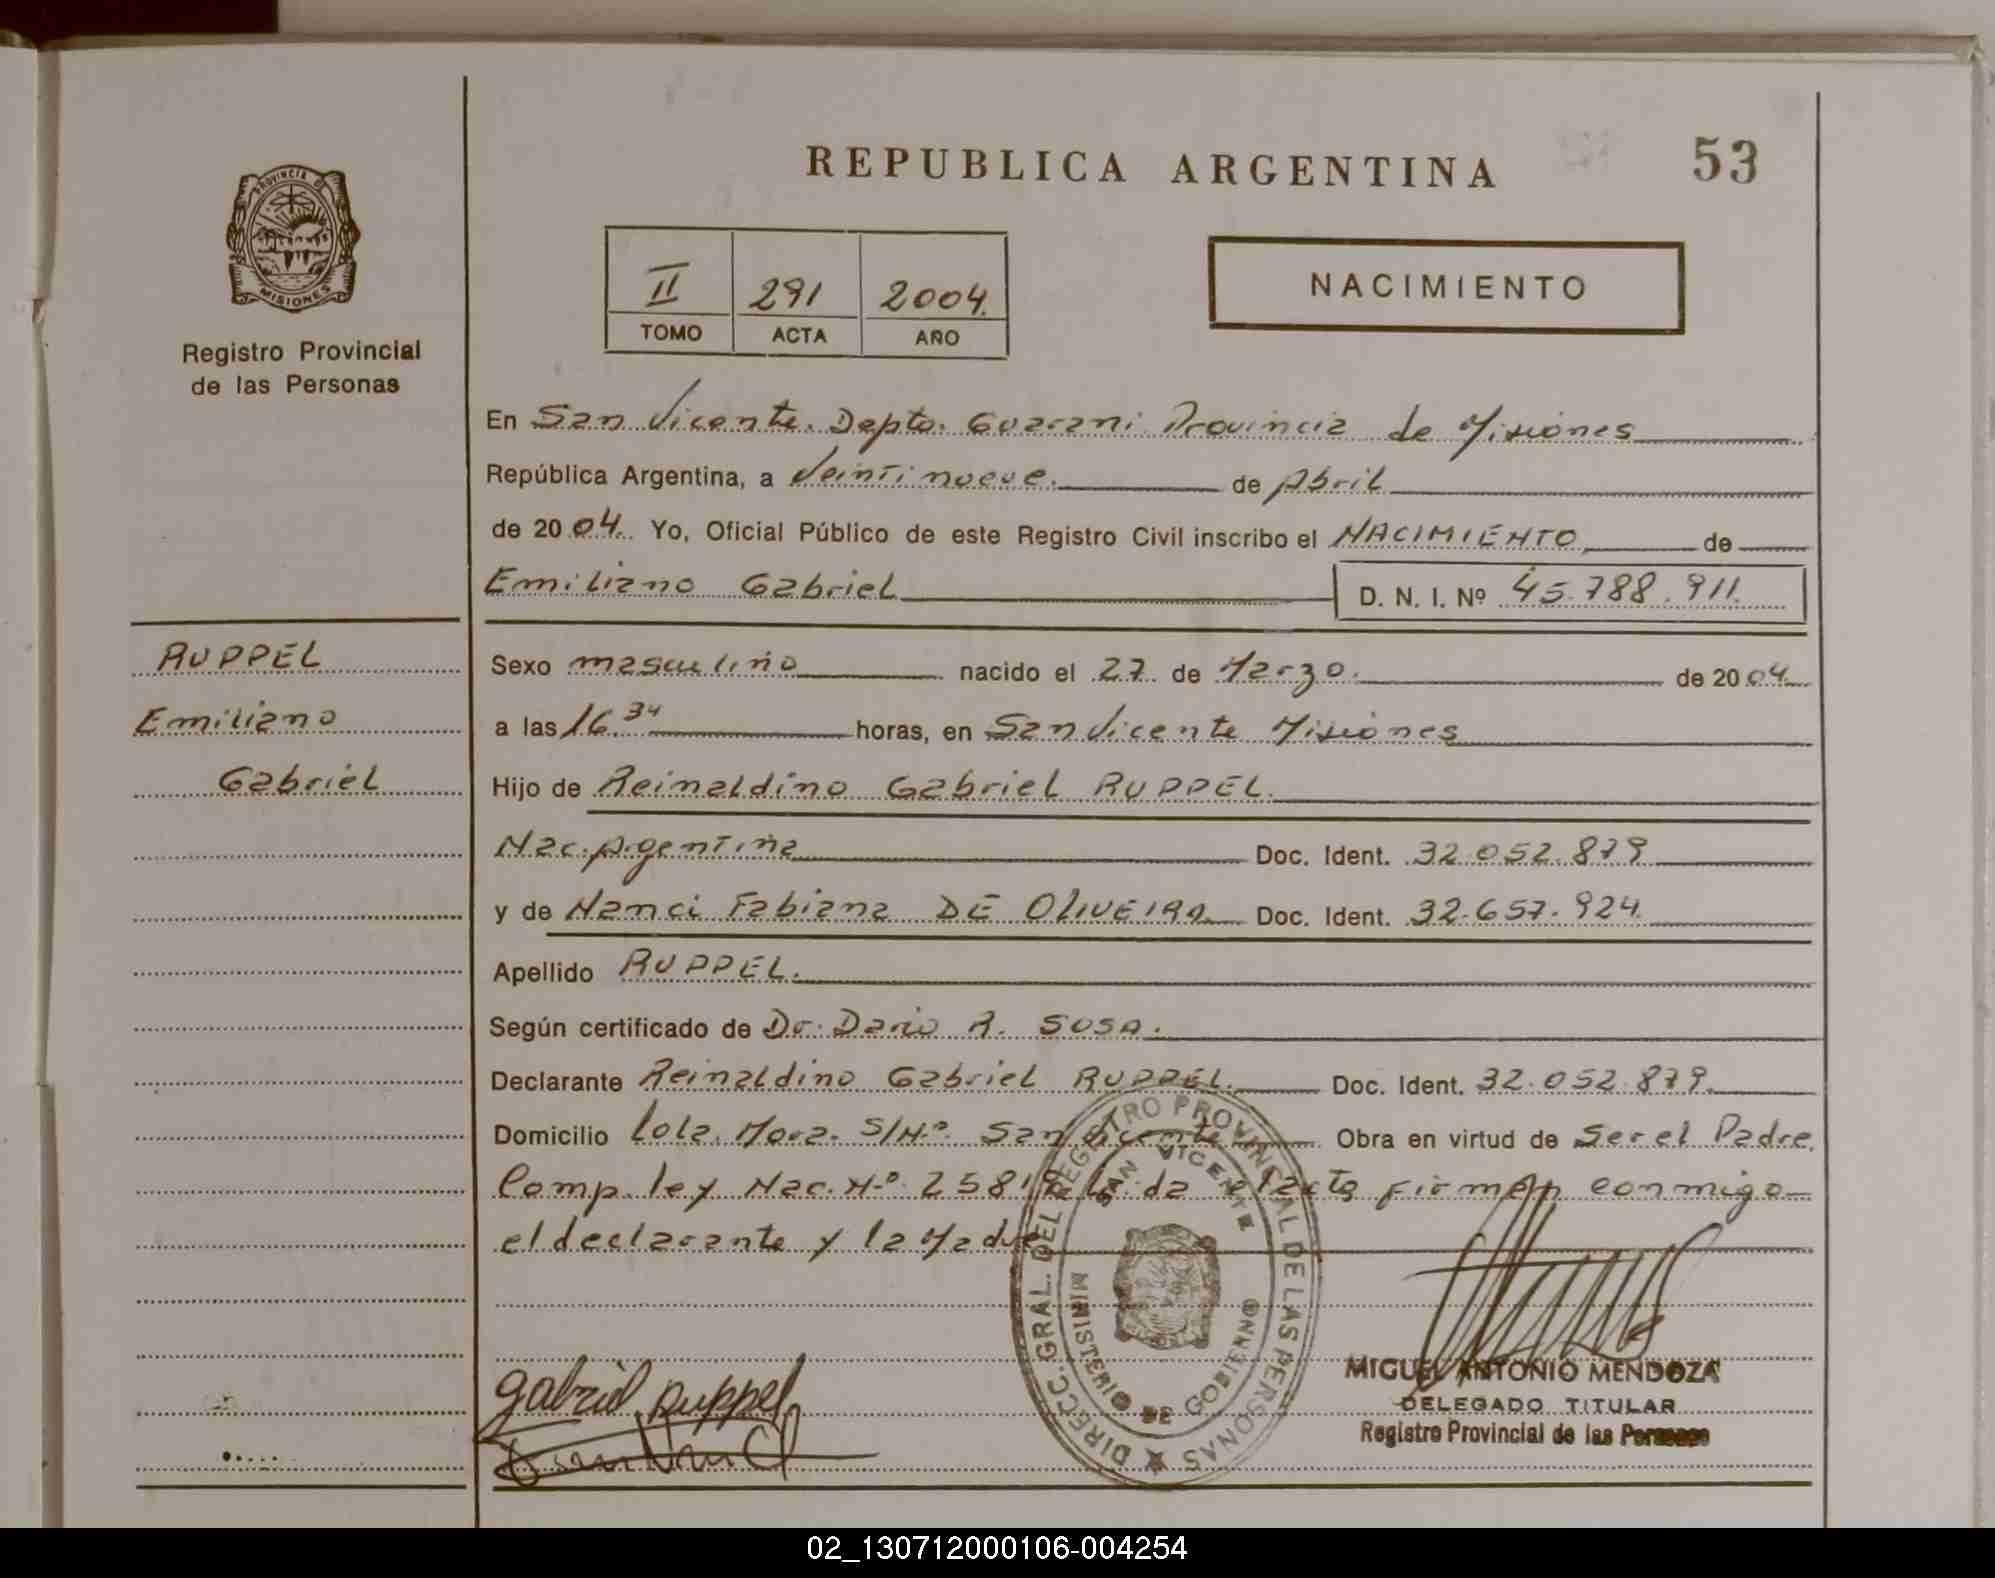 REPUBLICA ARGENTINA
53
PROVINCIA DE
MISIONES
Registro Provincial
de las Personas
II 291 2004.
TOMO ACTA AÑO
NACIMIENTO
En San Vicente. Depto. Guarani Provincia de Misiones
República Argentina, a Veintinueve. de Abril
de 2004. Yo, Oficial Público de este Registro Civil inscribo el NACIMIENTO de
Emiliano Gabriel D. N. I. Nº 45.788.911.
RUPPEL
Emiliano
Gabriel
Sexo masculino nacido el 27 de Marzo. de 2004.
a las 16.34 horas, en San Vicente Misiones
Hijo de Reinaldino Gabriel RUPPEL.
Nac. Argentina Doc. Ident. 32.052.879
y de Nanci Fabiana DE OLIVEIRA Doc. Ident. 32.657.924.
Apellido RUPPEL.
Según certificado de Dr. Dario R. SOSA.
Declarante Reinaldino Gabriel RUPPEL. Doc. Ident. 32.052.879.
Domicilio Lola Mora S/Nº San Vicente Obra en virtud de Ser el Padre.
Comp. ley Nac. Nº 25819 da el acta firman conmigo
el declarante y la Madre
DIRECC. GRAL. DEL REGISTRO PROVINCIAL DE LAS PERSONAS
SAN VICENTE
MINISTERIO DE GOBIERNO
Gabriel Ruppel
MIGUEL ANTONIO MENDOZA
DELEGADO TITULAR
Registro Provincial de las Personas
02_130712000106-004254